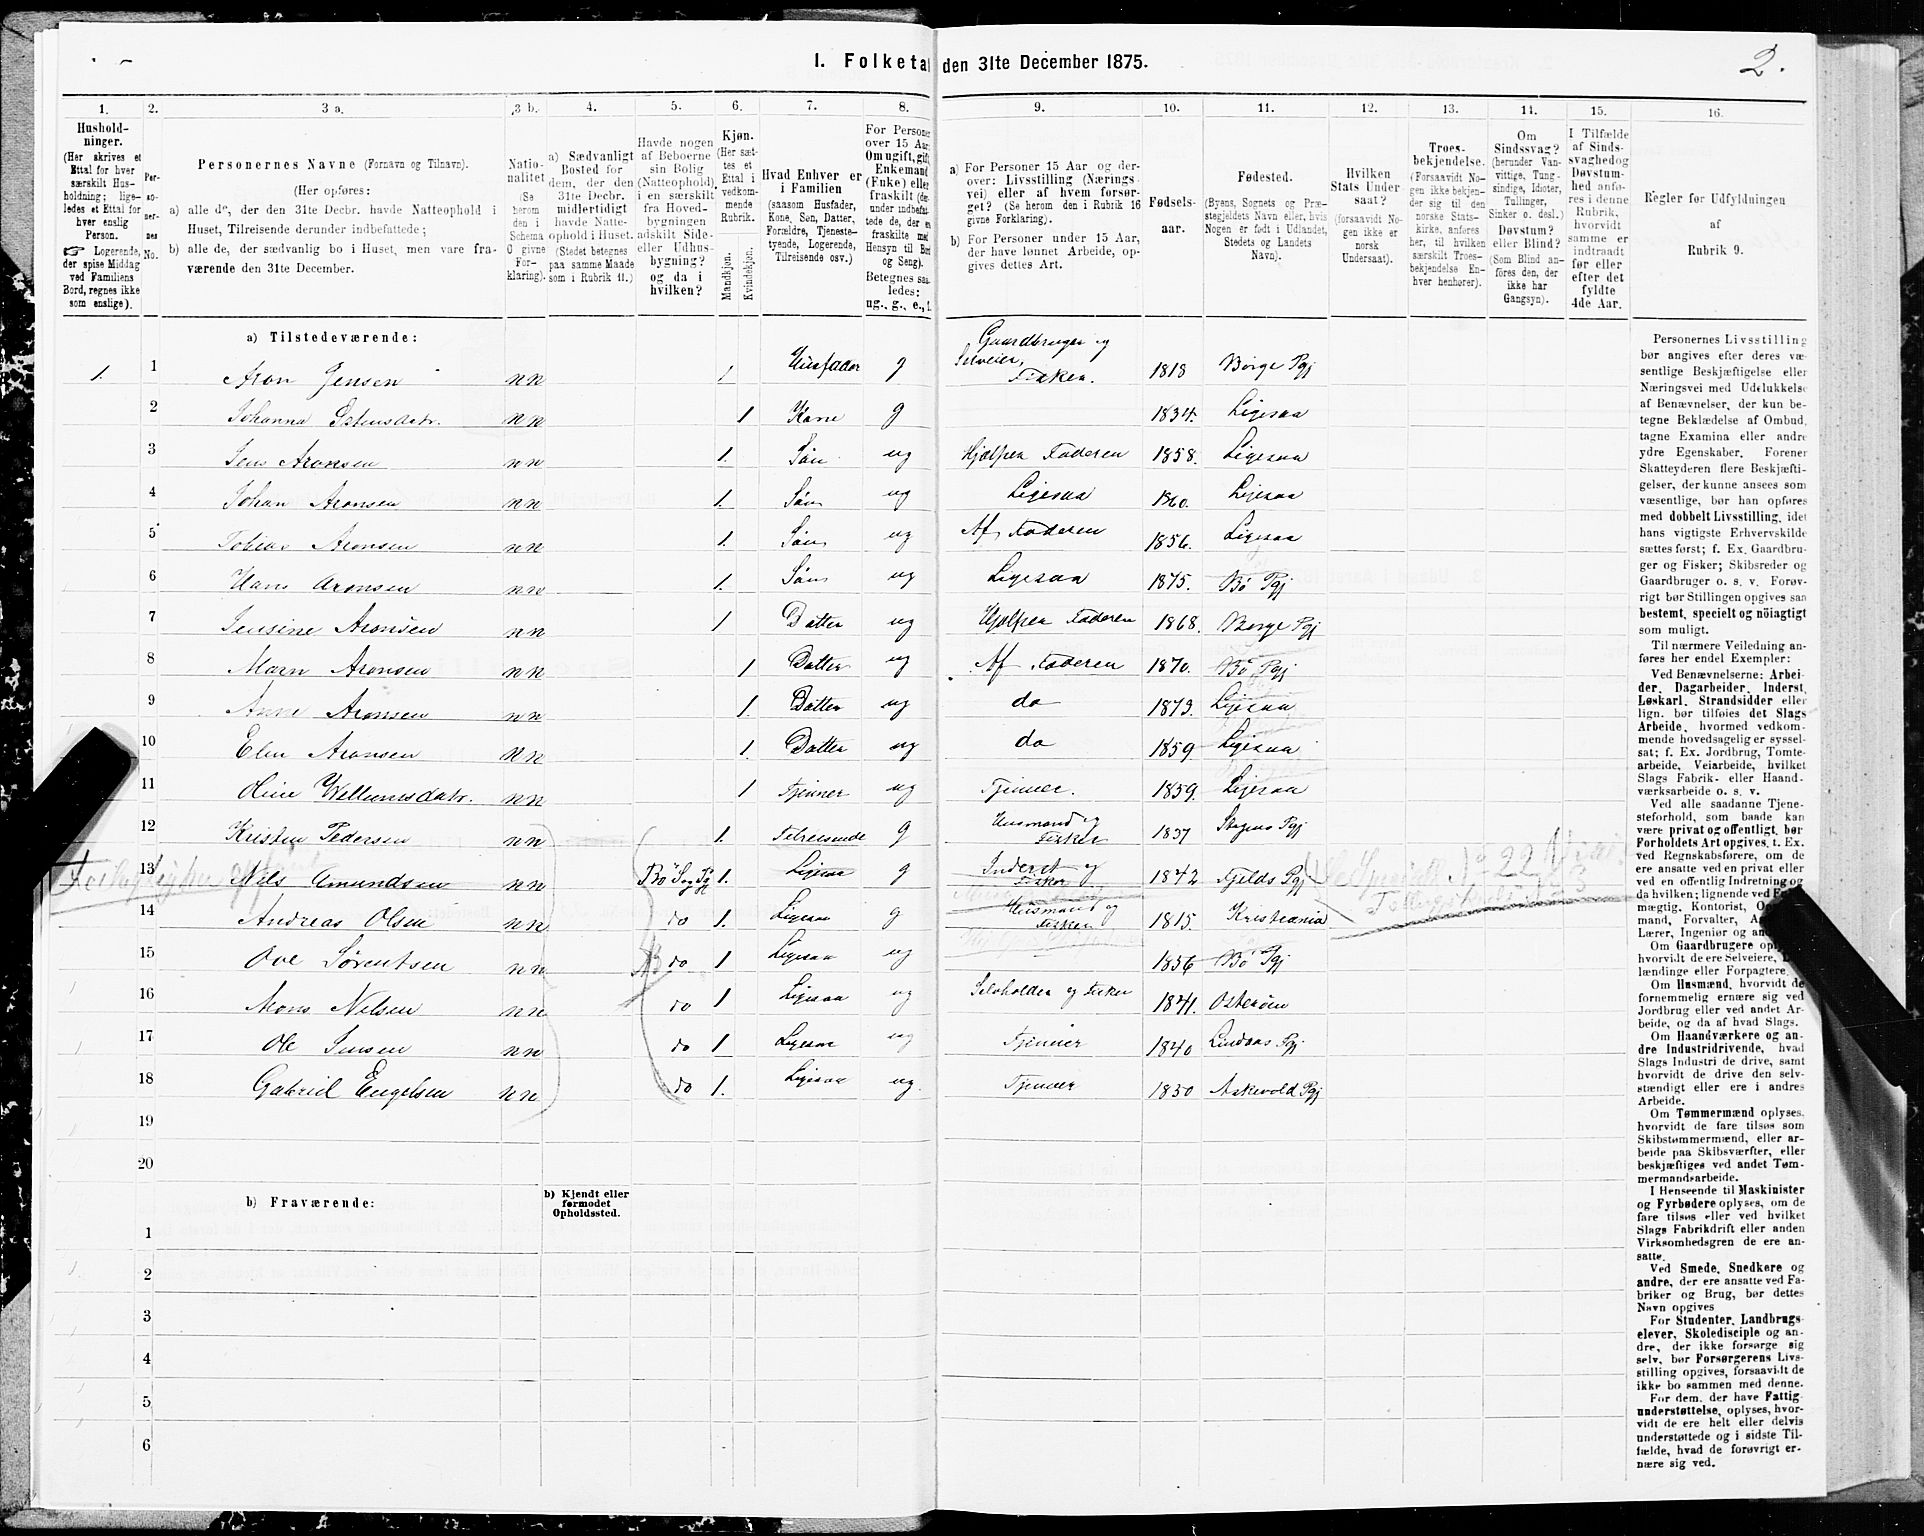 1. Folketal den 31te December 1875.
2.
1. 2. 3 a. 3 b. 4. 5. 6. 7. 8. 9. 10. 11. 12. 13. 14. 15. 16.
Hushold-
ninger.
(Her skrives et
Ettal for hver
særskilt Hus-
holdning; lige-
ledes et Ettal for
hver enslig
Person.
☞ Logerende,
der spise Middag
ved Familiens
Bord, regnes ikke
som enslige).
Per-
so-
ner-
nes
No.
Personernes Navne (Fornavn og Tilnavn).
(Her opføres:
a) alle de, der den 31te Decbr. havde Natteophold i
Huset, Tilreisende derunder indbefattede;
b) alle de, der sædvanlig bo i Huset, men vare fra-
værende den 31te December.
Natio-
nalitet
(Se
herom
den i
Schema
O givne
For-
klaring).
a) Sædvanligt
Bosted for
dem, der den
31te Decbr.
midlertidigt
havde Natte-
ophold i Huset.
(Stedet betegnes
paa samme Maade
som i Rubrik 11.)
Havde nogen
af Beboerne
sin Bolig
(Natteophold)
i en særskilt
fra Hoved-
bygningen
adskilt Side-
eller Udhus-
bygning?
og da i
hvilken?
Kjøn.
(Her sæt-
tes et
Ettal i
vedkom-
mende
Rubrik.
Mandkjøn.
Kvindekjøn.
Hvad Enhver er
i Familien
(saasom Husfader,
Kone, Søn, Datter,
Forældre, Tjeneste-
tyende, Logerende,
Tilreisende osv.)
For Personer
over 15 Aar:
Om ugift, gift,
Enkemand
(Enke) eller
fraskilt (der-
under indbefat-
tede de, der er
fraskilte med
Hensyn til Bord
og Seng).
Betegnes saa-
ledes:
ug., g., e., f.
a) For Personer 15 Aar og der-
over: Livsstilling (Nærings-
vei) eller af hvem forsør-
get? (Se herom den i Rubrik 16
givne Forklaring).
b) For Personer under 15 Aar,
der have lønnet Arbeide, op-
gives dettes Art.
Fødsels-
aar.
Fødested.
(Byens, Sognets og Præ-
stegjeldets Navn eller, hvis
Nogen er født i Udlandet,
Stedets og Landets
Navn).
Hvilken
Stats Under-
saat?
(forsaavidt No-
gen ikke er
norsk
Undersaat).
Troes-
bekjendelse.
(Forsaavidt No-
gen ikke bekjen-
der sig til den
norske Stats-
kirke, anføres
her, til hvilken
særskilt Troes-
bekjendelse En-
hver henhører).
Om
Sindssvag?
(herunder Van-
vittige, Tung-
sindige, Idioter,
Tullinger,
Sinker o. desl.)
Døvstum?
eller Blind?
(Som Blind an-
føres den, der
ikke har
Gangsyn).
I Tilfælde
af Sinds-
svaghedog
Døvstum-
hed anfø-
res i denne
Rubrik,
hvorvidt
samme er
indtraadt
før eller
efter det
fyldte
4de Aar.
Regler for Udfyldningen
af
Rubrik 9.
a) Tilstedeværende:
1. 1 Aron Jensen nn 1. Husfader g Gaardbruger og Selveier, Fisker. 1818 Borge Pgj
2 Johanna Estensdatr. nn 1 Kone g 1834. Ligesaa
3 Jens Aronsen nn 1. Søn ug Hjælper Faderen 1858. Ligesaa
4 Johan Aronsen nn 1. Søn ug Ligesaa 1860. Ligesaa
5 Tobias Aronsen nn 1. Søn ug Af Faderen 1856. Ligesaa
6 Hans Aronsen nn 1. Søn ug Ligesaa 1875. Bö Pgj
7 Jensine Aronsen nn 1 Datter ug Hjælper Faderen 1868. Borge Pgj
8 Maren Aronsen nn 1 Datter ug Af Faderen 1870. Bö Pgj
9 Anne Aronsen nn 1. Datter ug do 1873. Ligesaa
10 Elen Aronsen nn 1. Datter ug do 1859 Ligesaa
11 Oline Wellumsdatr. nn 1 Tjener ug Tjener. 1859. Ligesaa
12 Kristen Pedersen nn 1. Tilreisende g Husmand og Fisker 1837 Pgj
13 Nils Amundsen nn Bö Sogn Pgj 1. Ligesaa g Inderst og Fisker 1842 Fjelds Pgj
14 Andreas Olsen nn do 1. Ligesaa g Husmand og Fisker 1815. Kristiania
15 Ove Sørentsen nn do 1 Ligesaa ug 1856 Bö Pgj
16 Mons Nilsen nn do 1 Ligesaa ug Selvholden og Fisker 1841. Osterøen
17 Ole Jensen nn do 1 Ligesaa ug Tjener 1840 Lindaas Pgj
18 Gabriel Engelsen nn do 1. Ligesaa ug. Tjener 1850 Askevold Pgj
19
20
b) Fraværende:
b) Kjendt eller
formodet
Opholdssted.
1
2
3
4
5
6
Personernes Livsstilling
bør angives efter deres væ-
sentlige Beskjæftigelse eller
Næringsvei med Udelukkelse
af Benævnelser, der kun be-
tegne Beklædelse af Ombud,
tagne Examina eller andre
ydre Egenskaber. Forener
Skatteyderen flere Beskjæfti-
gelser, der kunne ansees som
væsentlige, bør han opføres
med dobbelt Livsstilling, idet
hans vigtigste Erhvervskilde
sættes først; f. Ex. Gaardbru-
ger og Fisker; Skibsreder og
Gaardbruger o. s. v. Forøv-
rigt bør Stillingen opgives saa
bestemt, specielt og nöiagtigt
som muligt.
Til nærmere Veiledning an-
føres her endel Exempler:
Ved Benævnelserne: Arbei-
der, Dagarbeider, Inderst,
Løskarl, Strandsidder eller
lign. bør tilføies det Slags
Arbeide, hvormed vedkom-
mende hovedsagelig er syssel-
sat; f. Ex. Jordbrug, Tomte-
arbeide, Veiarbeide, hvilket
Slags Fabrik- eller Haand-
værksarbeide o. s. v.
Ved alle saadanne Tjene-
steforhold, som baade kan
være privat og offentligt, bør
Forholdets Art opgives, t. Ex.
ved Regnskabsførere, om de
ere ansatte ved en privat eller
ved en offentlig Indretning og
da hvilken; lignende ved
mægtig, Kontorist,
mand, Forvalter,
Lærer, Ingeniør og
Om Gaardbrugere
hvorvidt de ere Selveiere,
lændinge eller Forpagtere.
Om Husmænd, hvorvidt de
fornemmelig ernære sig ved
Jordbrug eller ved andet Ar-
beide, og da af hvad Slags.
Om Haandværkere og an-
dre Industridrivende, hvad
Slags Industri de drive, samt
hvorvidt de drive den selv-
stændigt eller ere i andres
Arbeide.
Om Tømmermænd oplyses,
hvorvidt de fare tilsøs som
Skibstømmermænd, eller ar-
beide paa Skibsværfter, eller
beskjæftiges ved andet Tøm-
mermandsarbeide.
I Henseende til Maskinister
og Fyrbødere oplyses, om de
fare tilsøs eller ved hvilket
Slags Fabrikdrift eller anden
Virksomhedsgren de ere an-
satte.
Ved Smede, Snedkere og
andre, der ere ansatte ved Fa-
briker og Brug, bør dettes
Navn opgives
For Studenter, Landbrugs-
elever, Skoledisciple og an-
dre, der ikke forsørge sig
selv, bør Forsørgerens Livs-
stilling opgives, forsaavidt de
ikke bo sammen med denne.
For dem, der have Fattig-
understøttelse, oplyses, hvor-
vidt de ere helt eller delvis
understøttede og i sidste Til-
fælde, hvad de forøvrigt er-
nære sig ved.